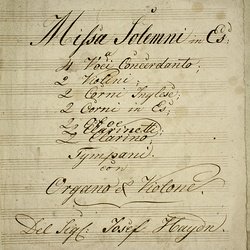 Missa Solemni in Es;
4 Voci Concerdanto;
2 Violini;
2 Corni Inglese;
2 Corni in Es;
2 Oboe
2 Clarinetti;
2 Clarino;
Tympani.
con
Organo & Violone.
Del Sig: Josef Haydn.